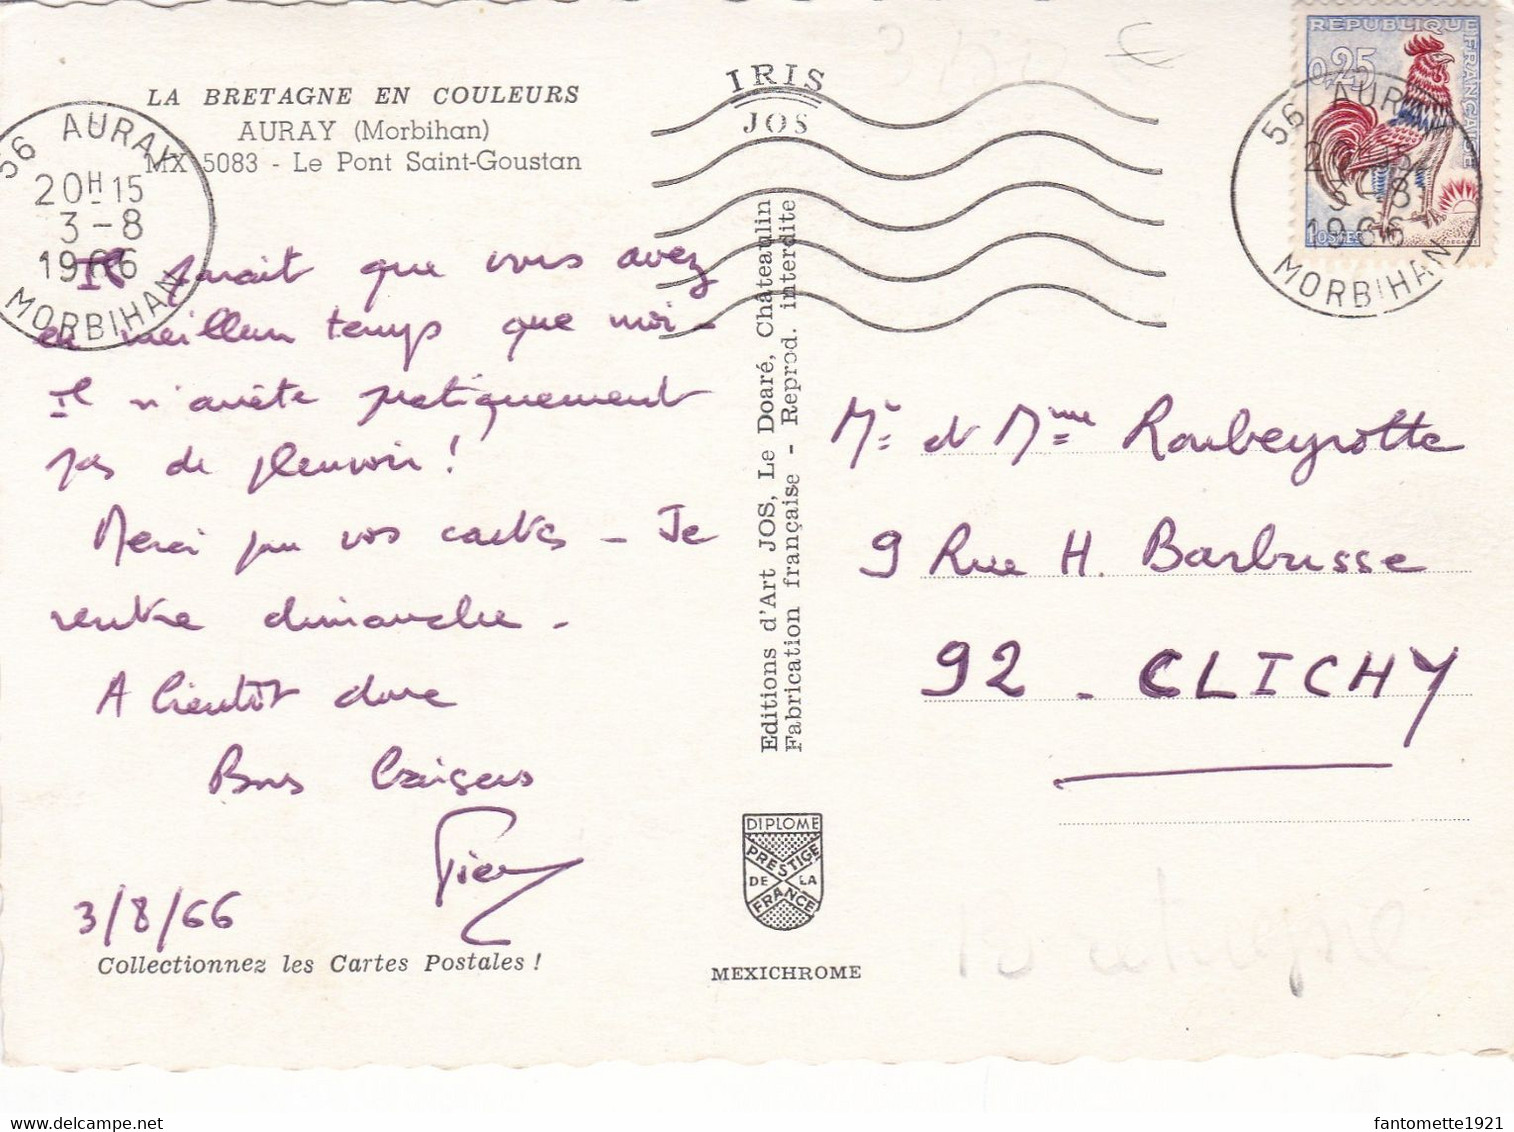 LA BRETAGNE EN COULEURS
AURAY (Morbihan)
MX 5083 - Le Pont Saint-Goustan
56 AURAY
20H15
3-8
1966
MORBIHAN
IRIS
JOS
REPUBLIQUE FRANÇAISE
0,25
POSTES
56 AURAY
3-8
1966
MORBIHAN
Il parait que vous avez
eu meilleur temps que moi -
Il n'arrête pratiquement
pas de pleuvoir !
Merci pour vos cartes - Je
rentre dimanche -
A bientôt donc
Bons Baisers
3/8/66
Collectionnez les Cartes Postales !
Editions d'Art JOS, Le Doaré, Châteaulin
Fabrication française - Reprod. interdite
DIPLOME
PRESTIGE
DE LA
FRANCE
MEXICHROME
Mr et Mme Roubeyrotte
9 Rue H. Barbusse
92 - CLICHY
Bretagne
fantomette1921